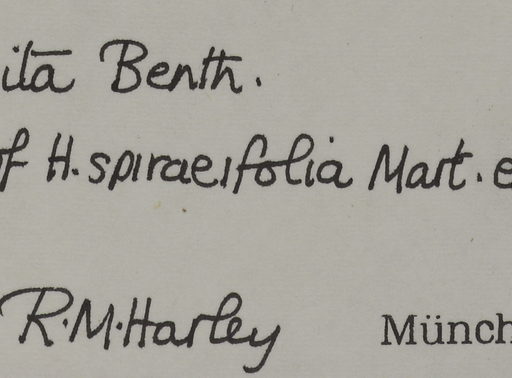 ita Benth.
f H. spiraeifolia Mart. e
R.M.Harley Münch